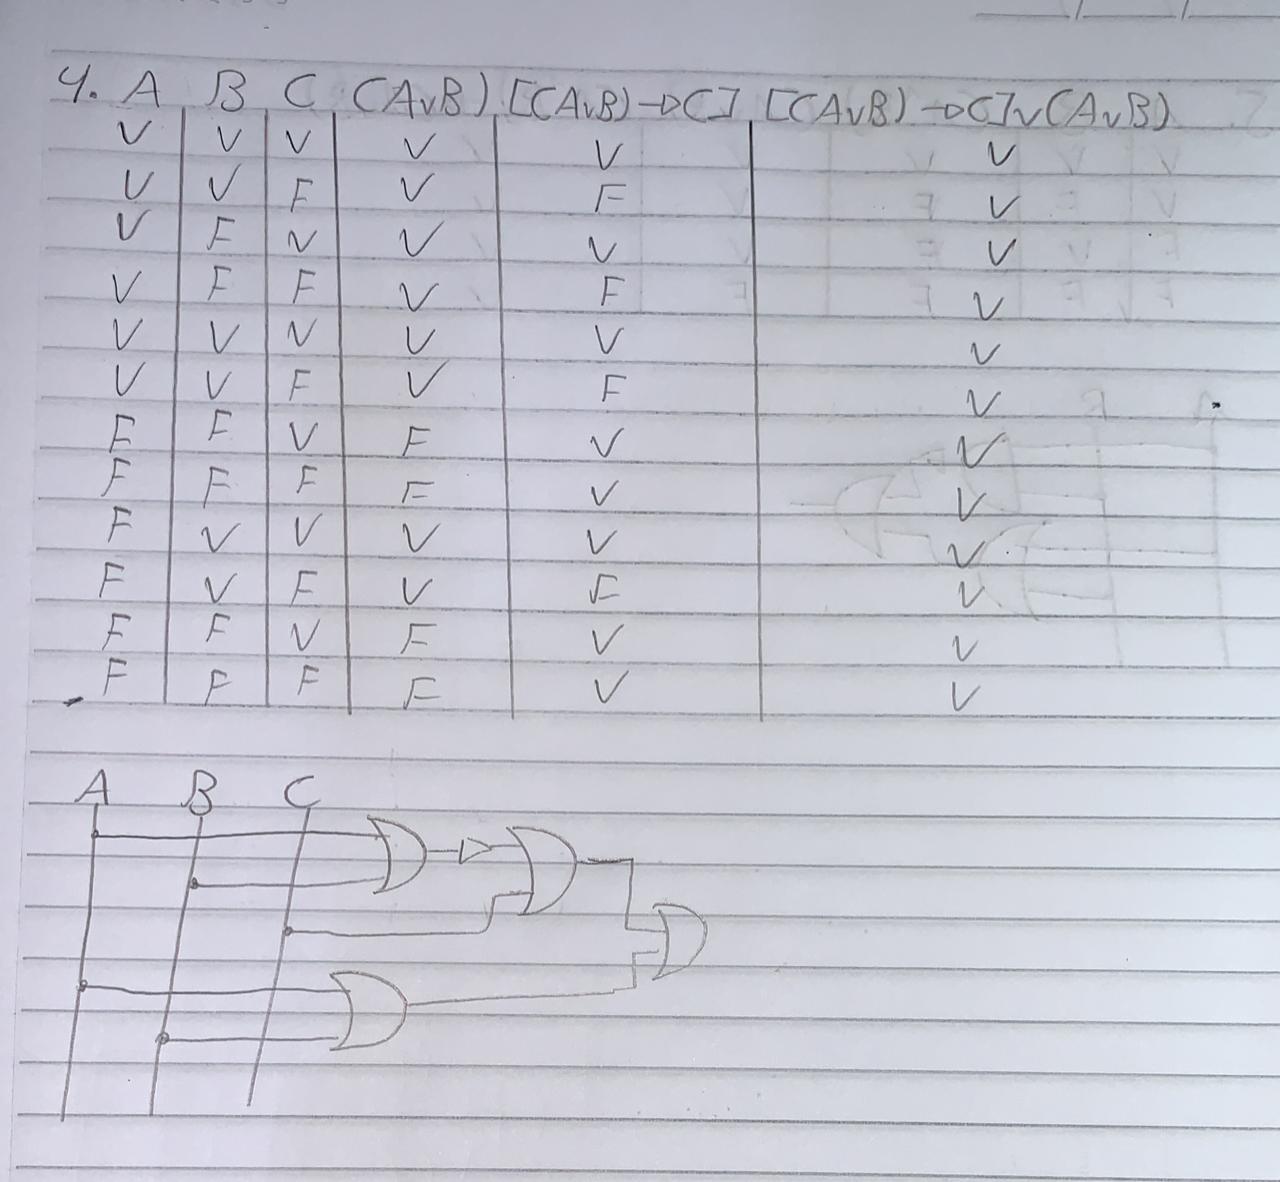 4. A B C (A∨B) [(A∨B)→C] [(A∨B)→C]∨(A∨B)
V V V V V V
V V F V F V
V F V V V V
V F F V F V
V V V V V V
V V F V F V
F F V F V V
F F F F V V
F V V V V V
F V F V F V
F F V F V V
F F F F V V
A B C